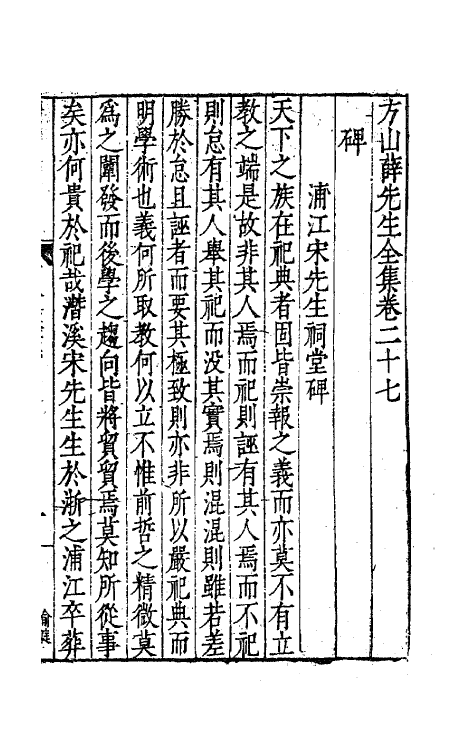 方山薛先生全集卷二十七
碑
浦江宋先生祠堂碑
天下之族在祀典者固皆崇報之義而亦莫不有立
教之端是故非其人焉而祀則誣有其人焉而不祀
則怠有其人舉其祀而没其實焉則混混則雖若差
勝於怠且誣者而要其極致則亦非所以嚴祀典而
明學術也義何所取教何以立不惟前哲之精微莫
爲之闡發而後學之趨向皆將貿貿焉莫知所從事
矣亦何貴於祀哉潛溪宋先生生於浙之浦江卒葬